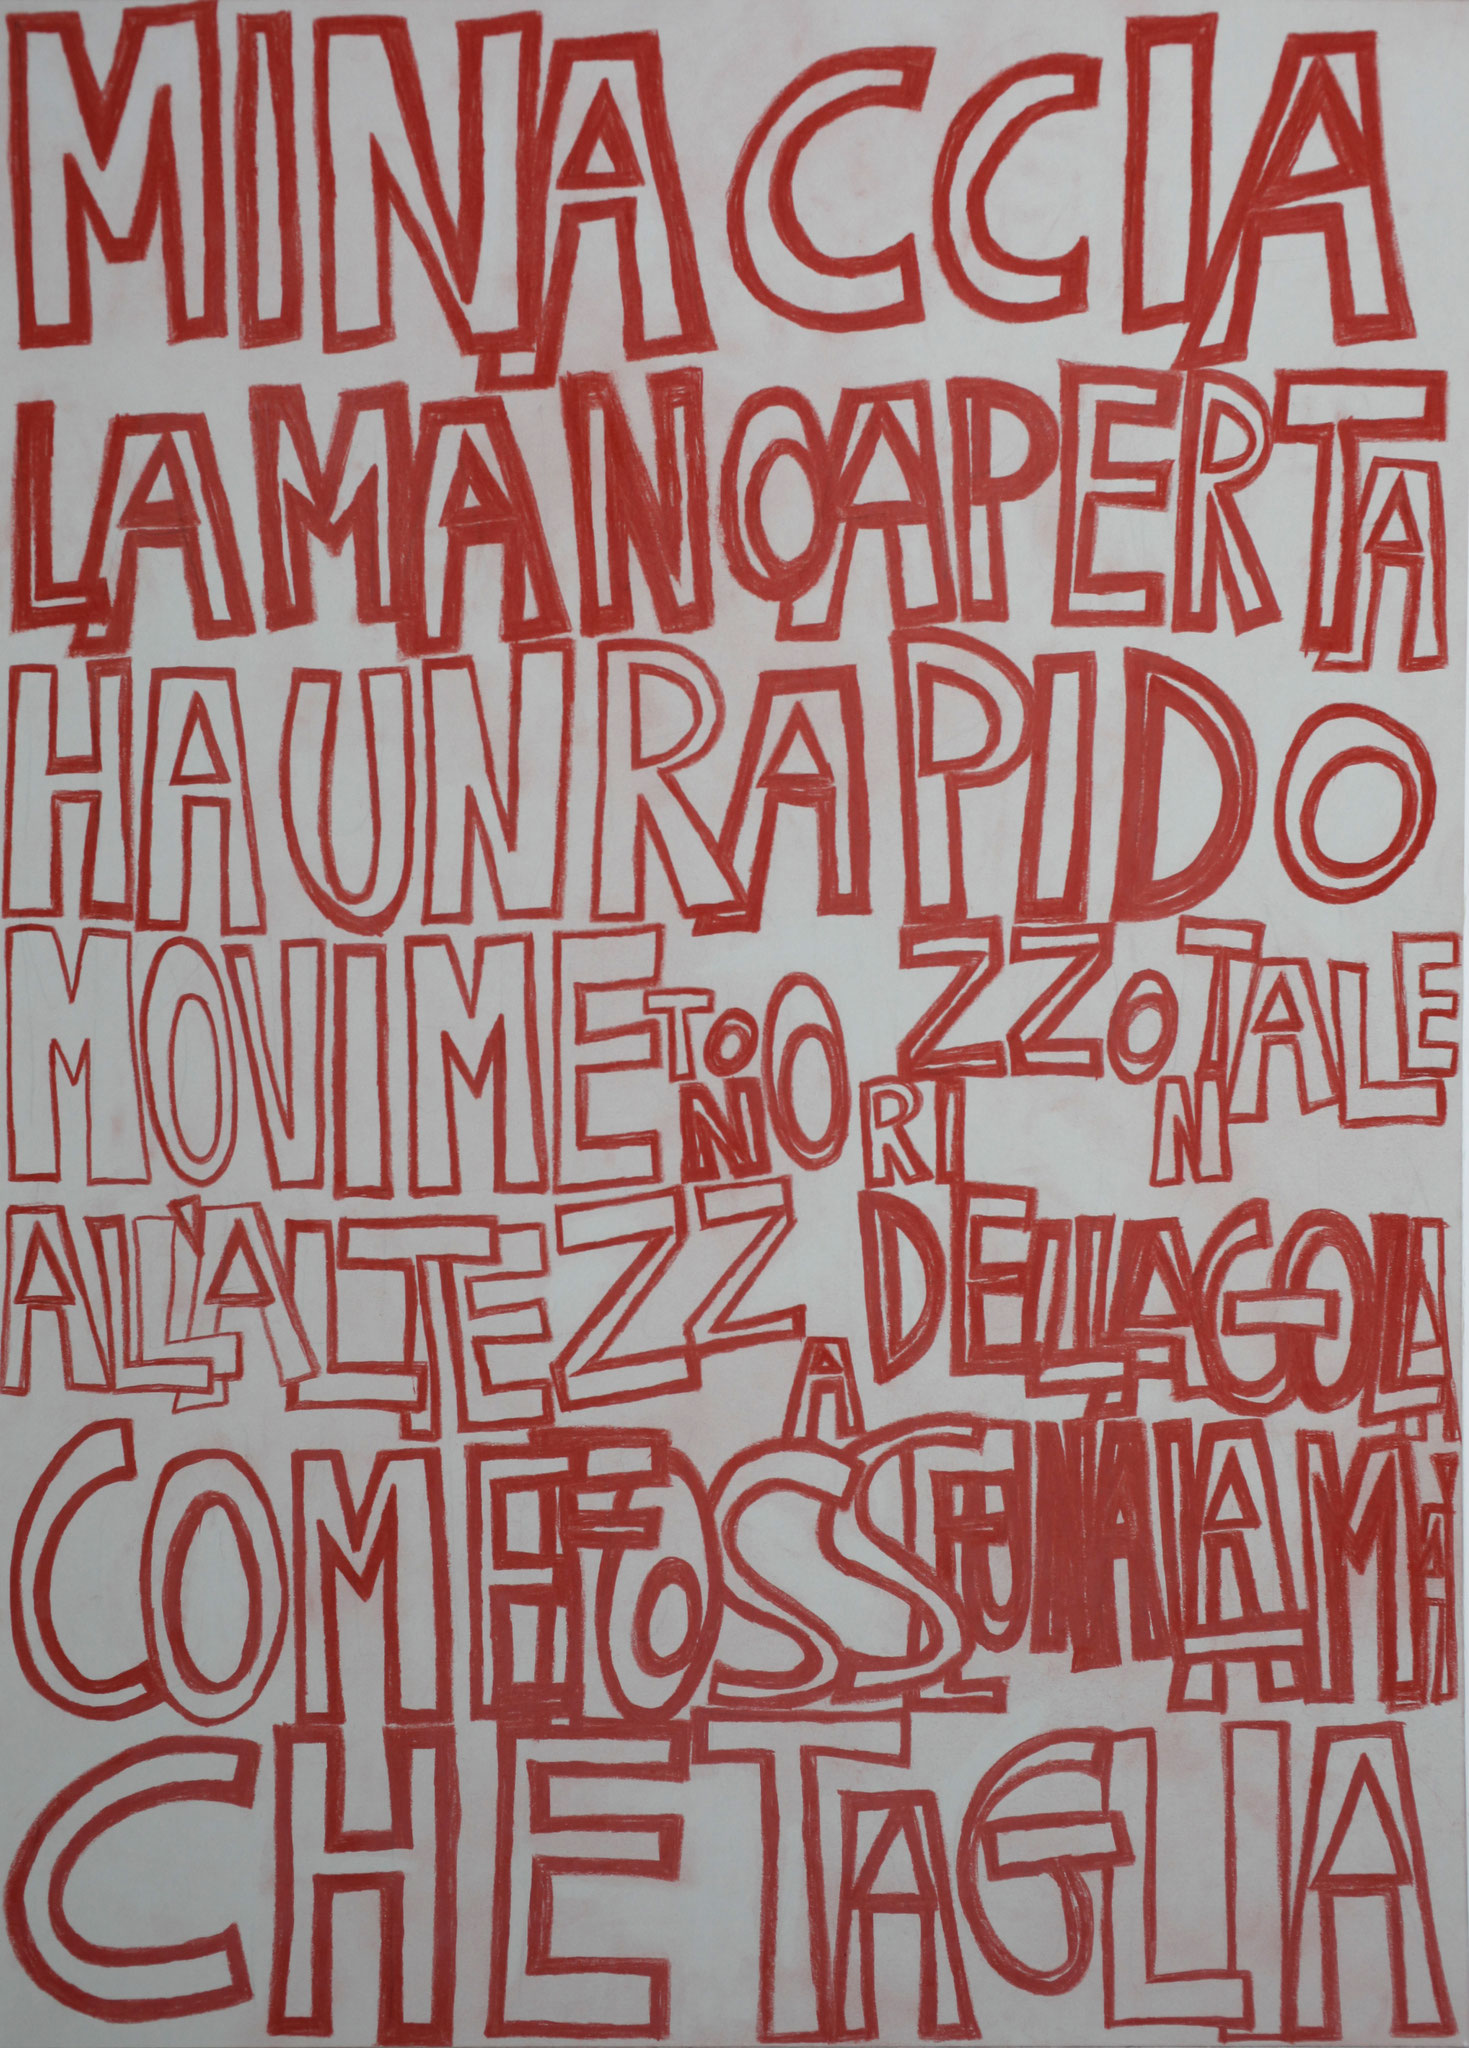 MINACCIA
LA MANO APERTA
HA UN RAPIDO
MOVIMENTO ORIZZONTALE
ALL'ALTEZZA DELLA GOLA
COME FOSSE UNA LAMA
CHE TAGLIA